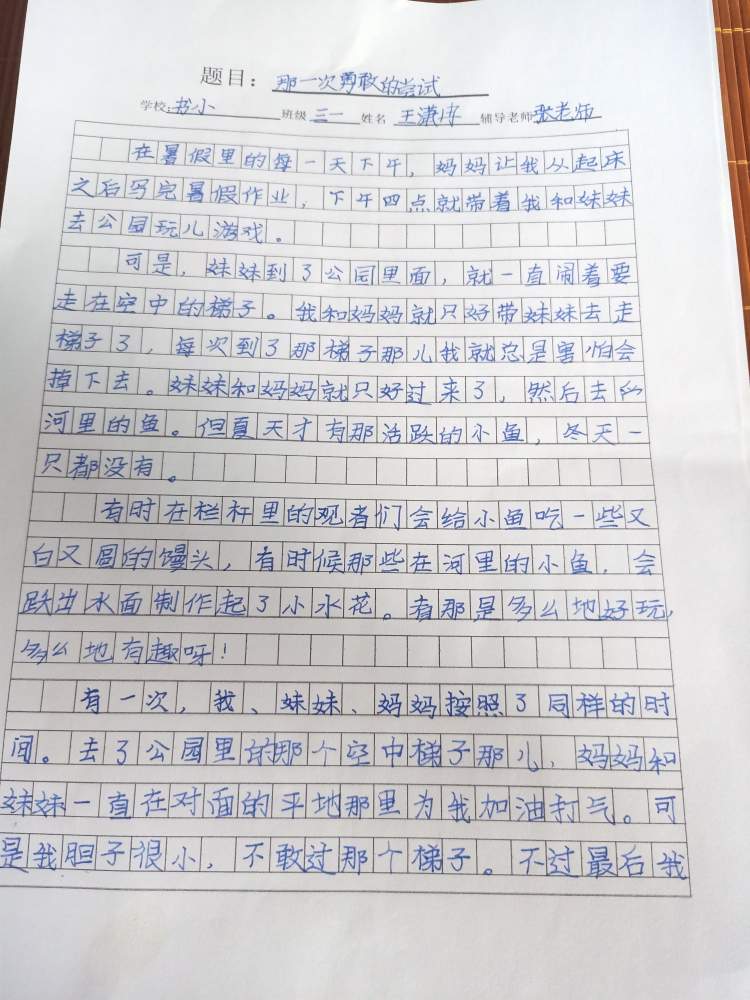 题目：那一次勇敢的尝试
学校：书小 班级 三一 姓名 王潇 辅导老师 张老师
在暑假里的每一天下午，妈妈让我从起床
之后写完暑假作业，下午四点就带着我和妹妹
去公园玩儿游戏。
可是，妹妹到了公园里面，就一直闹着要
走在空中的梯子。我和妈妈就只好带妹妹去走
梯子了，每次到了那梯子那儿我就总是害怕会
掉下去。妹妹和妈妈就只好过来了，然后去
河里的鱼。但夏天才有那活跃的小鱼，冬天一
只都没有。
有时在栏杆里的观者们会给小鱼吃一些又
白又圆的馒头，有时候那些在河里的小鱼，会
跃出水面制作起了小水花。看那是多么地好玩，
多么地有趣呀！
有一次，我、妹妹、妈妈按照了同样的时
间。去了公园里的那个空中梯子那儿，妈妈和
妹妹一直在对面的平地那里为我加油打气。可
是我胆子很小，不敢过那个梯子。不过最后我